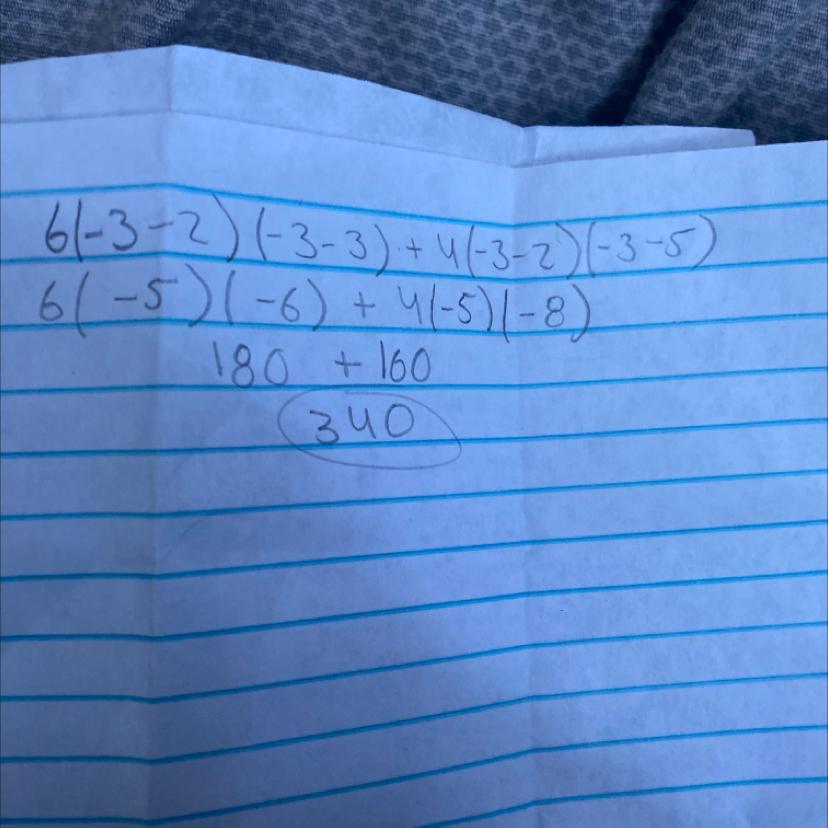 6(-3-2)(-3-3)+4(-3-2)(-3-5)
6(-5)(-6)+4(-5)(-8)
180 +160
340